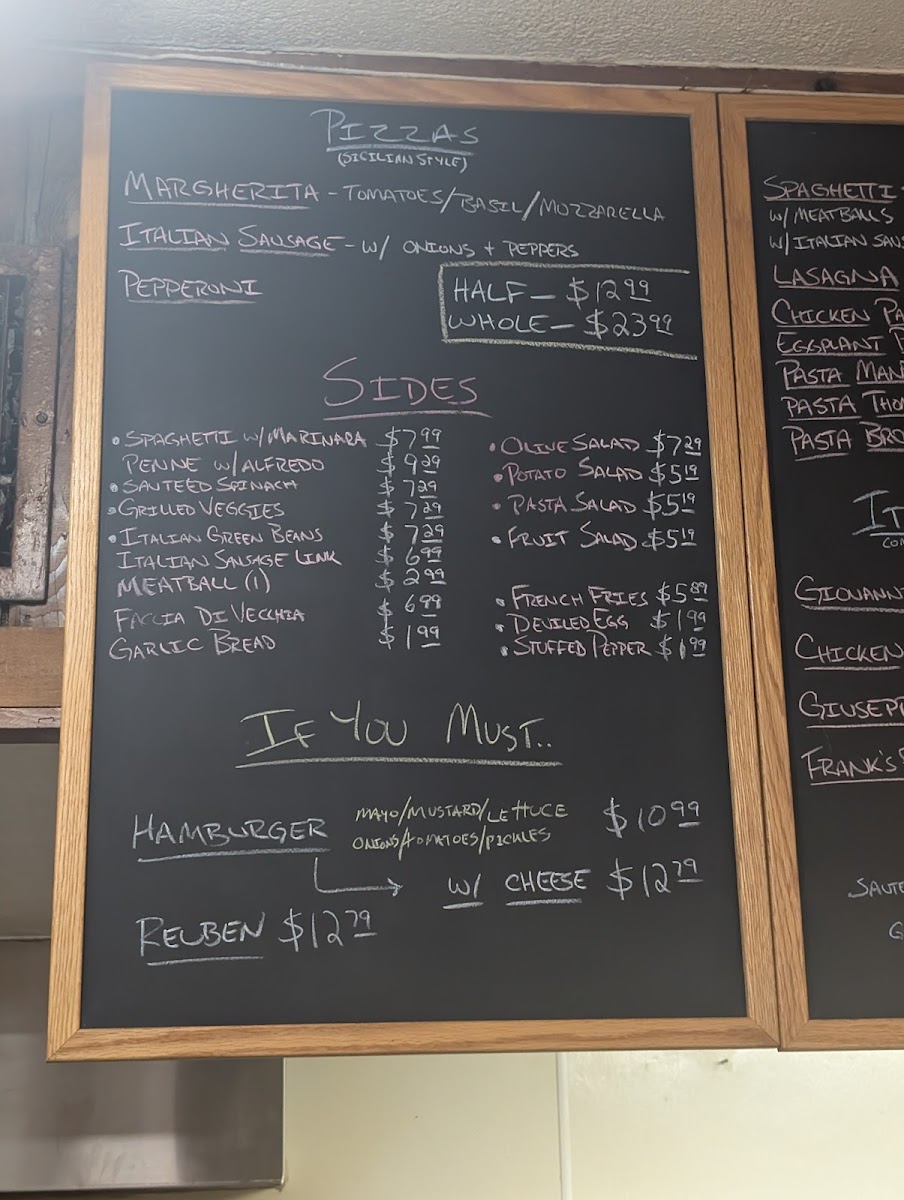 PIZZAS
(SICILIAN STYLE)
MARGHERITA - TOMATOES/BASIL/MOZZARELLA
ITALIAN SAUSAGE - W/ ONIONS + PEPPERS
PEPPERONI
HALF - $12.99
WHOLE - $23.99
SIDES
• SPAGHETTI W/ MARINARA $7.99
PENNE W/ ALFREDO $9.29
• SANTEED SPINACH $7.29
• GRILLED VEGGIES $7.29
• ITALIAN GREEN BEANS $7.29
ITALIAN SAUSAGE LINK $6.99
MEATBALL (1) $2.99
FACCIA DI VECCHIA $6.99
GARLIC BREAD $1.99
• OLIVE SALAD $7.29
• POTATO SALAD $5.19
• PASTA SALAD $5.19
• FRUIT SALAD $5.19
• FRENCH FRIES $5.89
• DEVILED EGG $1.99
• STUFFED PEPPER $1.99
IF YOU MUST..
HAMBURGER MAYO/MUSTARD/LETTUCE $10.99
ONIONS/TOMATOES/PICKLES
W/ CHEESE $12.79
REUBEN $12.79
SPAGHETTI
W/ MEATBALLS
W/ ITALIAN SAUS
LASAGNA
CHICKEN PA
EGGPLANT
PASTA MAN
PASTA THO
PASTA BRO
GIOVANNI
CHICKEN
GIUSEPP
FRANK'S
SAUTE